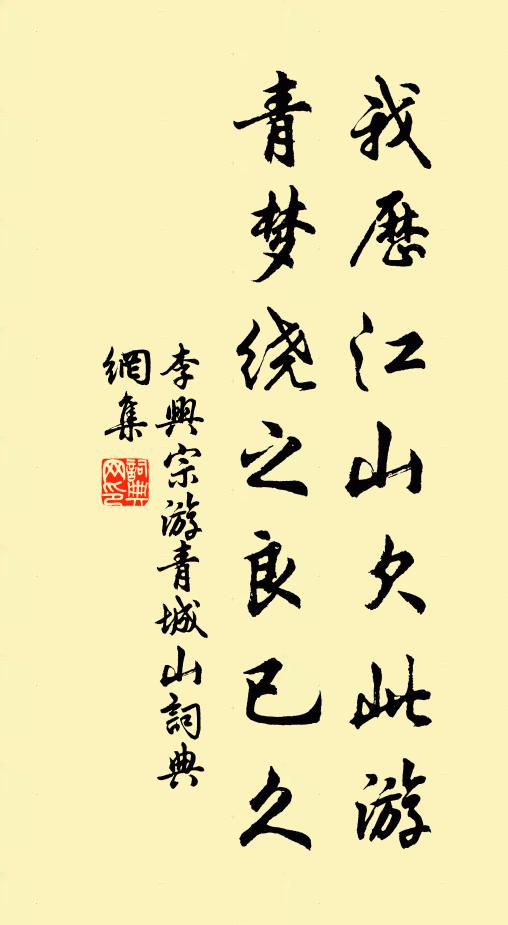 我歷江山欠此游
青梦绕之良已久
李興宗游青城山詞典
網集
詞典網印